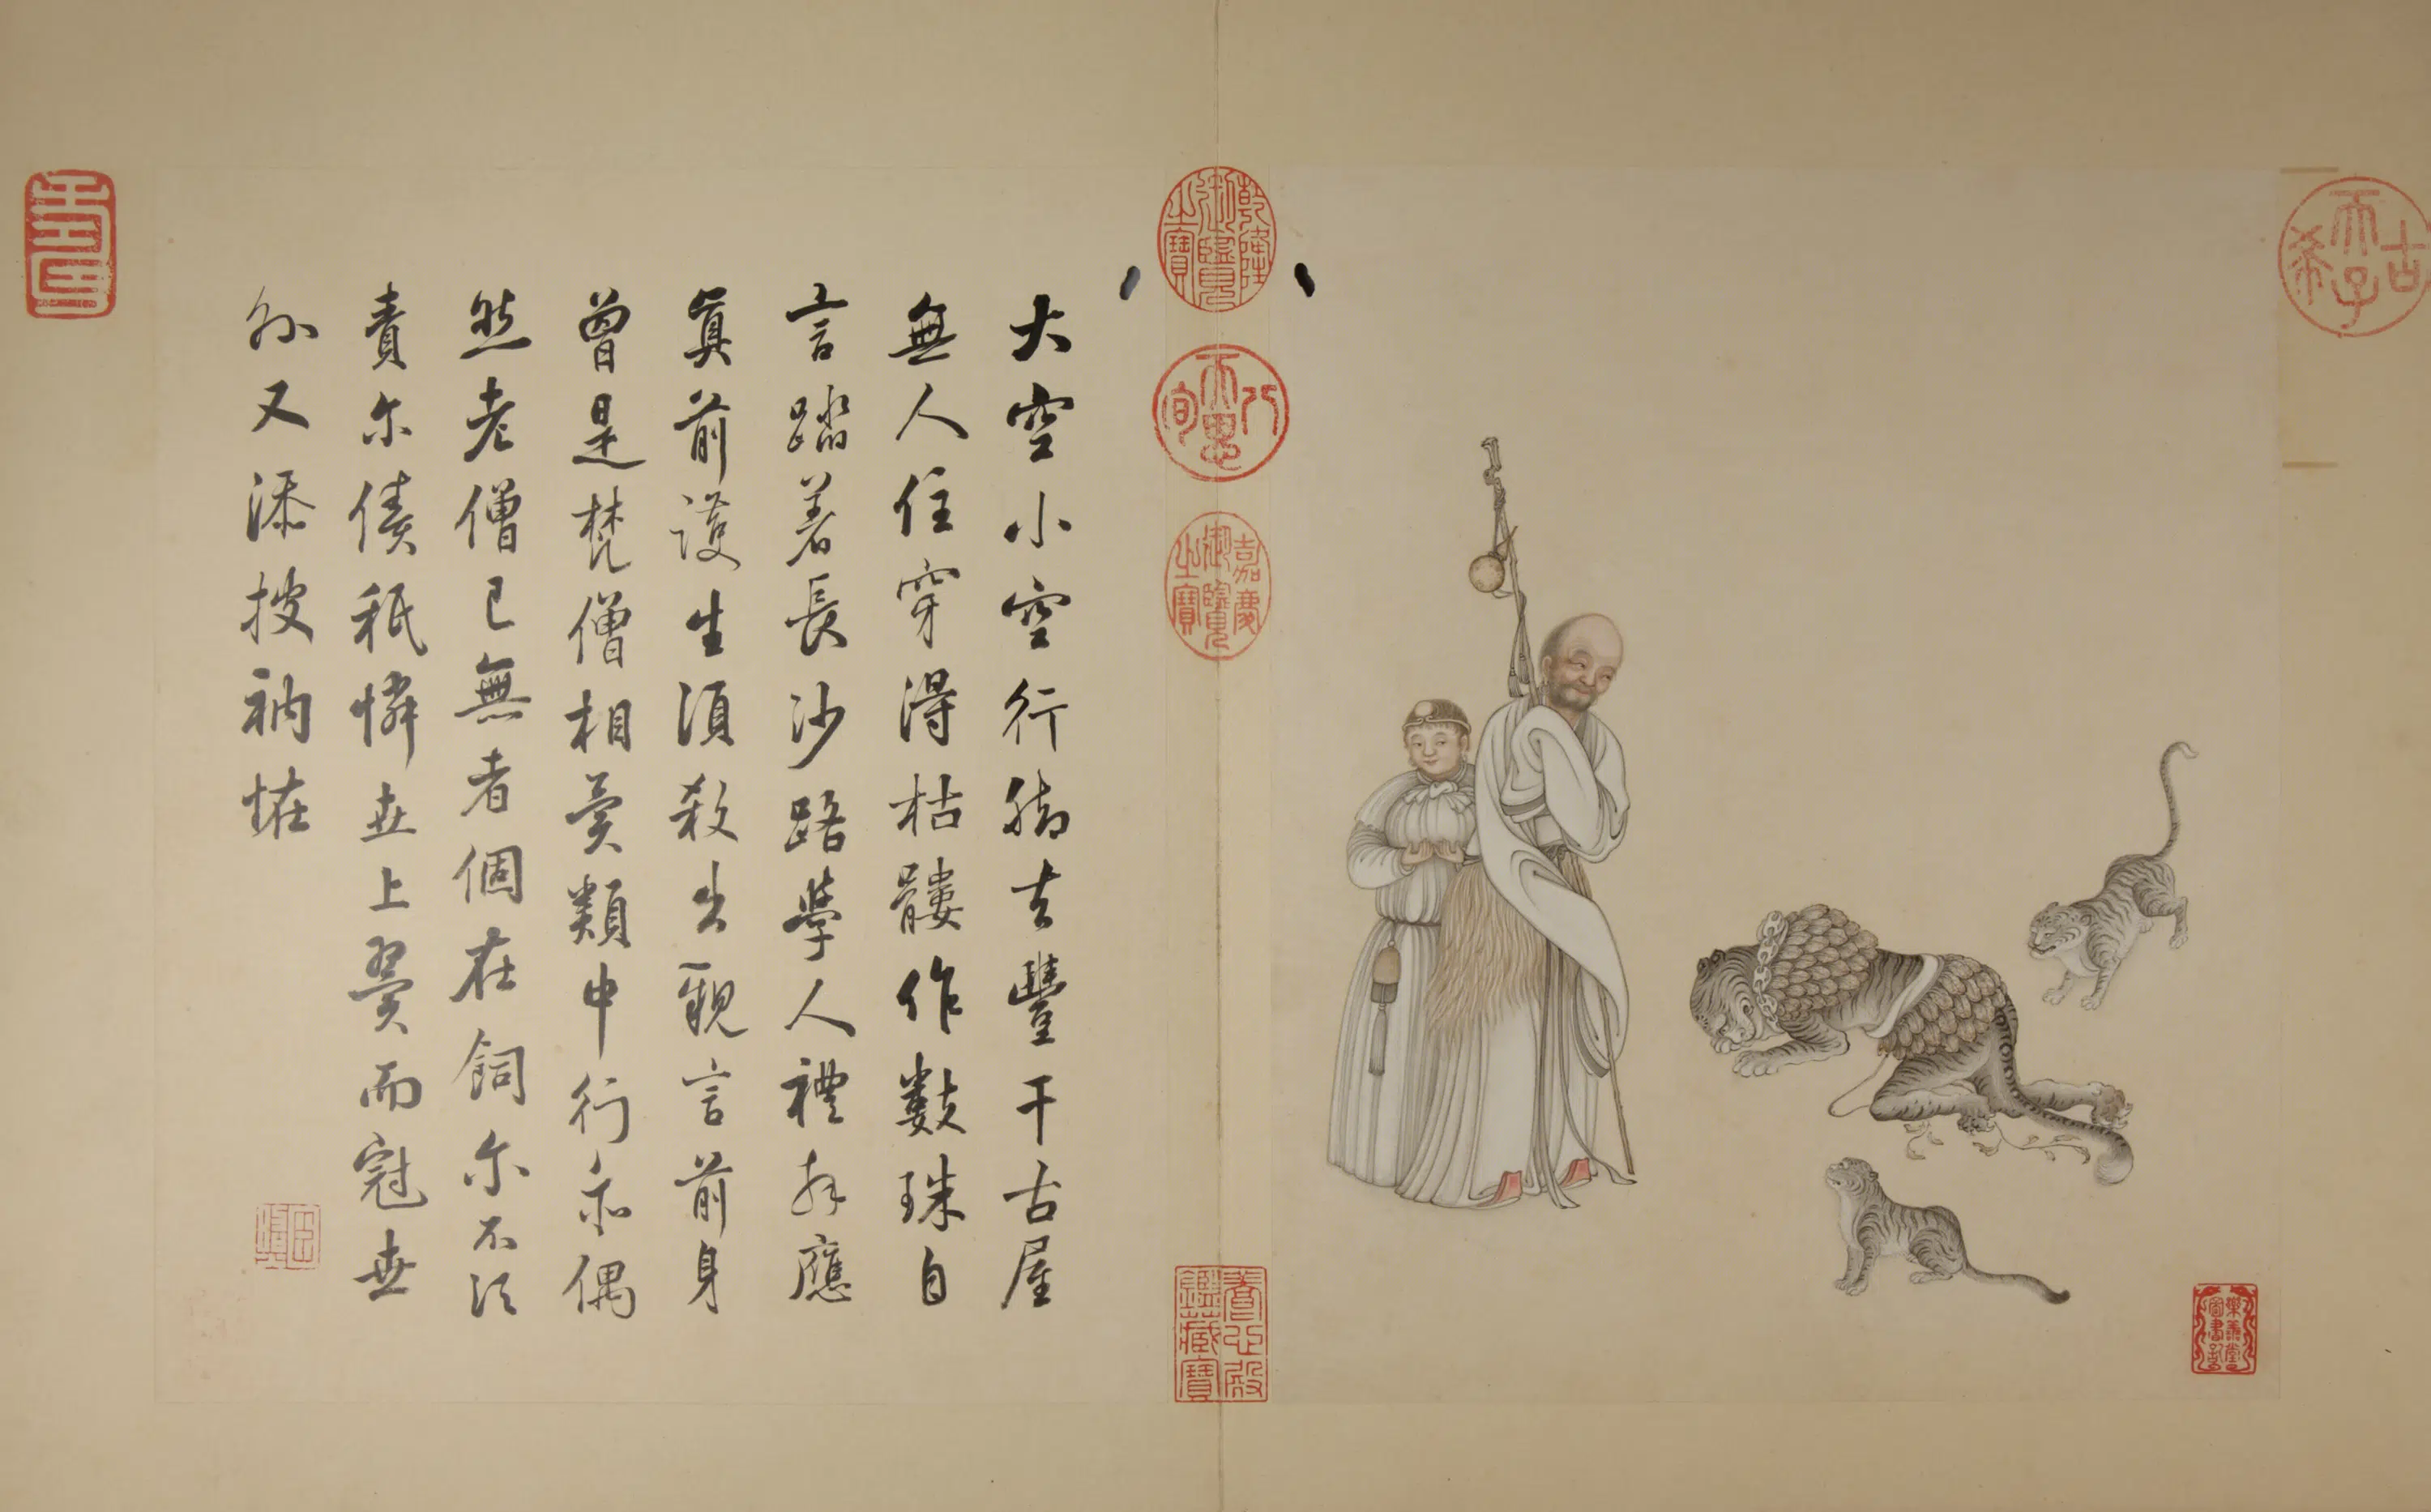 古希天子
樂善堂圖書記
乾隆御覽之寶
嘉慶御覽之寶
養心殿鑑藏寶
大空小空行脚去豐干古屋
無人住穿得枯髏作數珠自
言踏着長沙路學人禮拜應
眞前護生須殺出觀言前身
曾是梵僧相異類中行亦偶
然老僧已無者個在飼尔不須
責尔債秖憐世上翼而冠世
外又添披衲怪